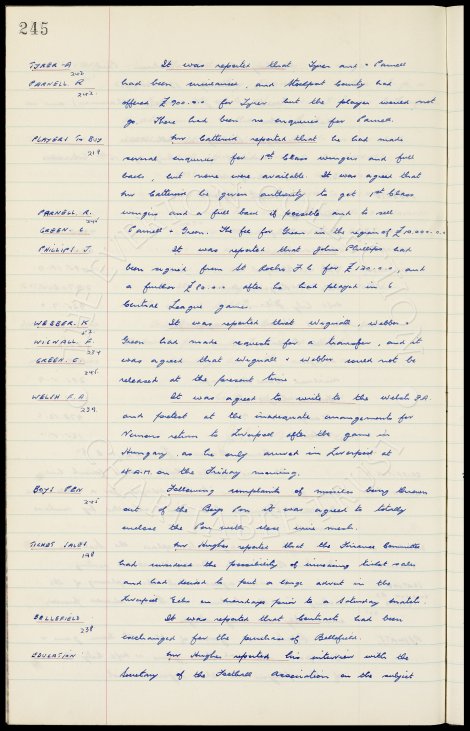 245
TYRER. A
242
It was reported that Tyrer and Parnell
PARNELL R.
242
had been circularised, and Stockport County had
offered £900.0.0 for Tyrer but the player would not
go. There had been no enquiries for Parnell.
PLAYERS TO BUY
219
Mr Catterick reported that he had made
several enquiries for 1st Class wingers and full
backs, but none were available. It was agreed that
Mr Catterick be given authority to get 1st Class
PARNELL. R.
wingers and a full back if possible and to sell
GREEN. C.
Parnell + Green. The fee for Green in the region of £10.000.0.0
PHILLIPS. J.
It was reported that John Phillips had
been signed from St Rochs F.C for £120.0.0, and
a further £80.0.0 after he had played in 6
Central League games.
WEBBER. K
It was reported that Wignall, Webber +
WIGNALL. F.
234
Green had made requests for a transfer, and it
GREEN. C.
245
was agreed that Wignall + Webber would not be
released at the present time
WELSH F.A.
239.
It was agreed to write to the Welsh F.A.
and protest at the inadequate arrangements for
Vernons return to Liverpool after the game in
Hungary, as he only arrived in Liverpool at
A.M. on the Friday morning.
BOYS PEN
Following complaints of missiles being thrown
out of the Boys Pen it was agreed to totally
enclose the Pen with close wire mesh.
TICKET SALES
198
Mr Hughes reported that the Finance Committee
had considered the possibility of increasing ticket sales
and had decided to put a large advert in the
Liverpool Echo on prior to a Saturday match.
BELLEFIELD
238
It was reported that Contracts had been
exchanged for the purchase of Bellefield.
EDUCATION
Mr Hughes reported his interview with the
Secretary of the Football Association on the subject